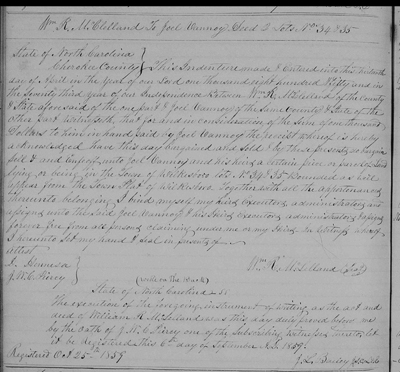 Wm R. McLelland To Joel Vannoy Deed 2 Lots Nos 34 & 35
State of North Carolina
Cherokee County } This Indenture made & entered into this
day of April in the Year of our Lord one thousand eight hundred Fifty and in
the Seventy third year of our Independence between Wm R. McLelland of the County
& State aforesaid of the one part & Joel Vannoy of the Same County & State of the
other part Witnesseth, that for and in consideration of the Sum of one thousand
Dollars to him in hand paid by Joel Vannoy the receipt whereof is hereby
acknowledged have this day bargained and Sold & by these presents, do bargain
Sell & unto Joel Vannoy and his heirs a certain piece or parcel of land
lying or being in the Town of Wilkesboro lots Nos 34 & 35 Bounded as will
appear from the Town Plat of Wilkesboro. Together with all the appurtenances
thereunto belonging I bind myself my heirs executors, administrators and
assigns unto the Said Joel Vannoy & his heirs executors administrators & assigns
forever free from all persons claiming under me or my heirs. In Witness whereof
I hereunto Set my hand & Seal in presents of
attest
J. W. C. Piercy
Wm R. McLelland (Seal)
State of North Carolina
The execution of the foregoing instrument of writing as the act and
deed of William R. McLelland was this day duly proved before me
by the oath of J. W. C. Piercy one of the Subscribing Witnesses thereto let
it be registered This 6th day of September A.D. 1859.
Registered Oct 25th 1859
J. L. Bailey